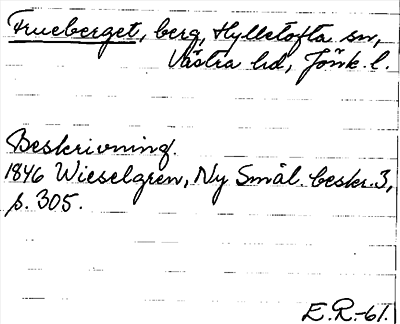 Frueberget, berg, Hylletofta sn,
Västra hd, Jönk. l.
Beskrivning.
1846 Wieselgren, Ny Smål. beskr. 3,
p. 305.
E.R.-61.